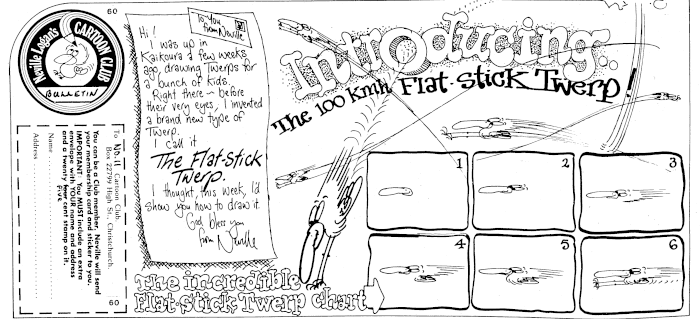 60
Neville Lodge's
CARTOON CLUB
BULLETIN
To You
from Neville
Hi!
I was up in
Kaikoura a few weeks
ago, drawing Twerps for
a bunch of kids.
Right there — before
their very eyes, I invented
a brand new type of
Twerp.
I call it
The Flat-Stick
Twerp.
I thought, this week, I'd
show you how to draw it.
God bless you
from Neville
Introducing:
The 100 kmh Flat-Stick Twerp!
1
2
3
4
5
6
The incredible
Flat-Stick Twerp Chart
To No.11 Cartoon Club
Box 22799 High St., Christchurch.
You can be a Club member. Neville will send
your membership card and sticker to you.
IMPORTANT: You MUST include an extra
envelope with YOUR name and address
and a twenty four cent stamp on it.
FIVE
Name
Address
60